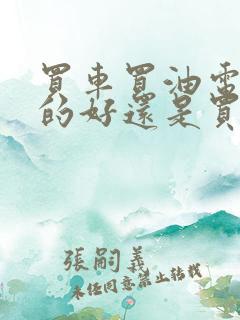 買車買油電
的好還是買
張嗣義
未任同意禁止轉載